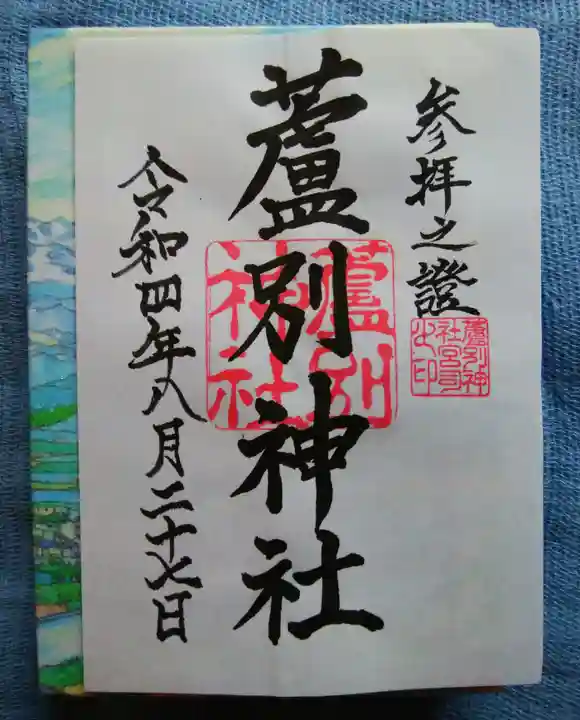 参拝之證
蘆別神
社宮司
之印
蘆別神社
蘆別
神社
令和四年八月二十七日